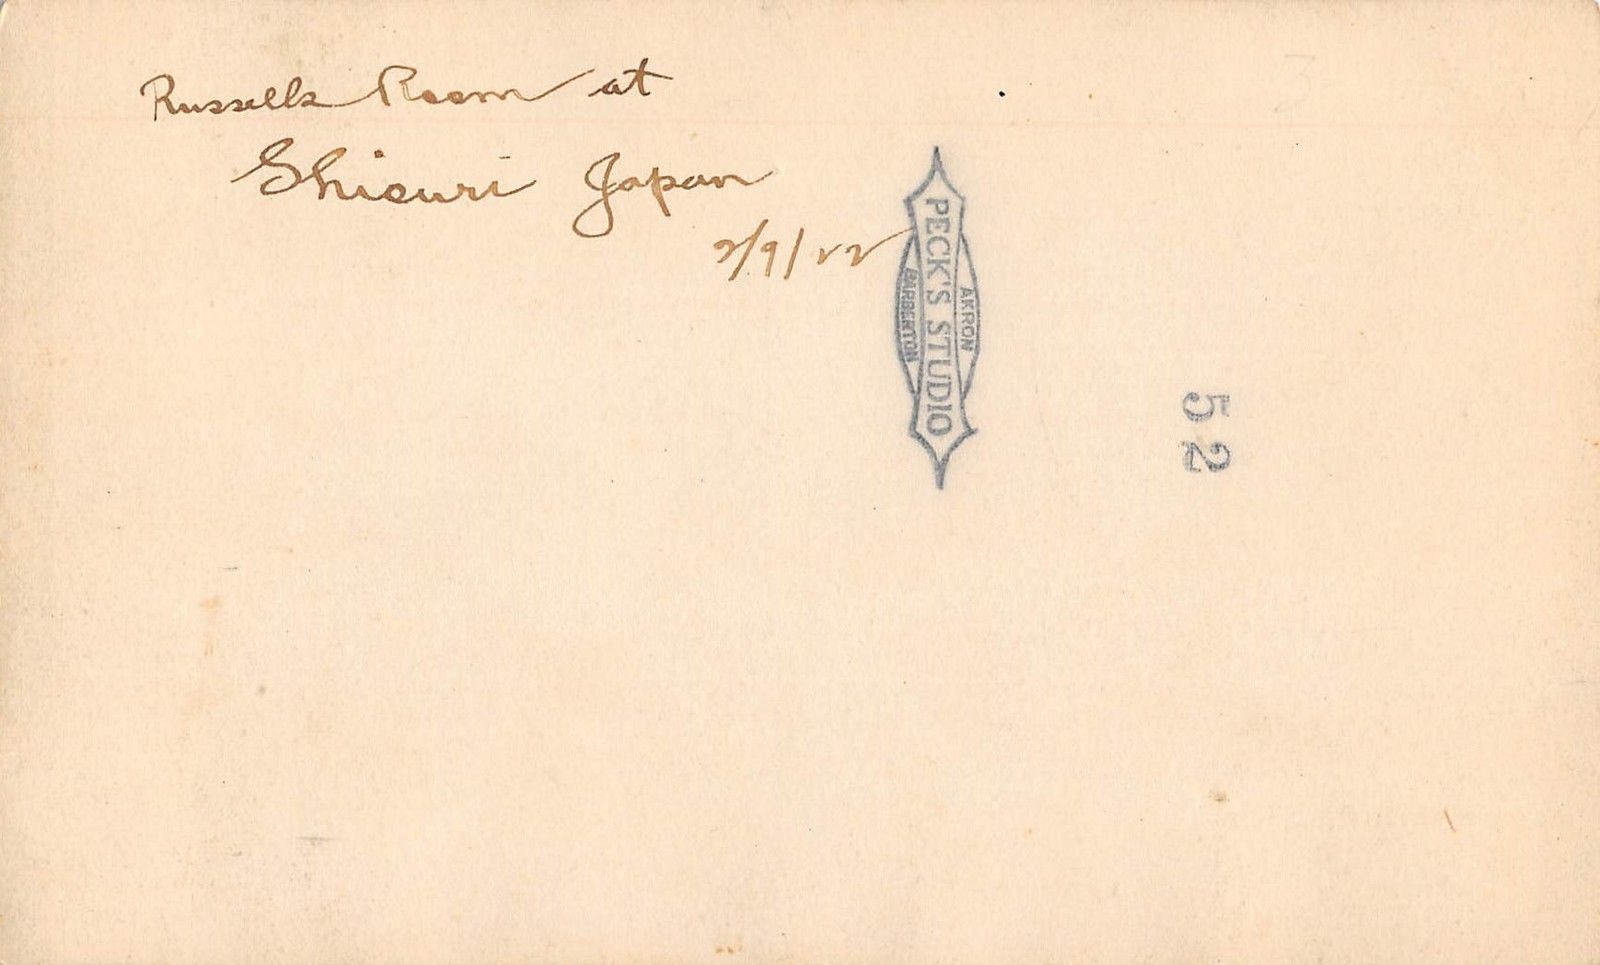 Russells Room at
Shiouri Japan
2/9/22
PECK'S STUDIO
AKRON
BARBERTON
52